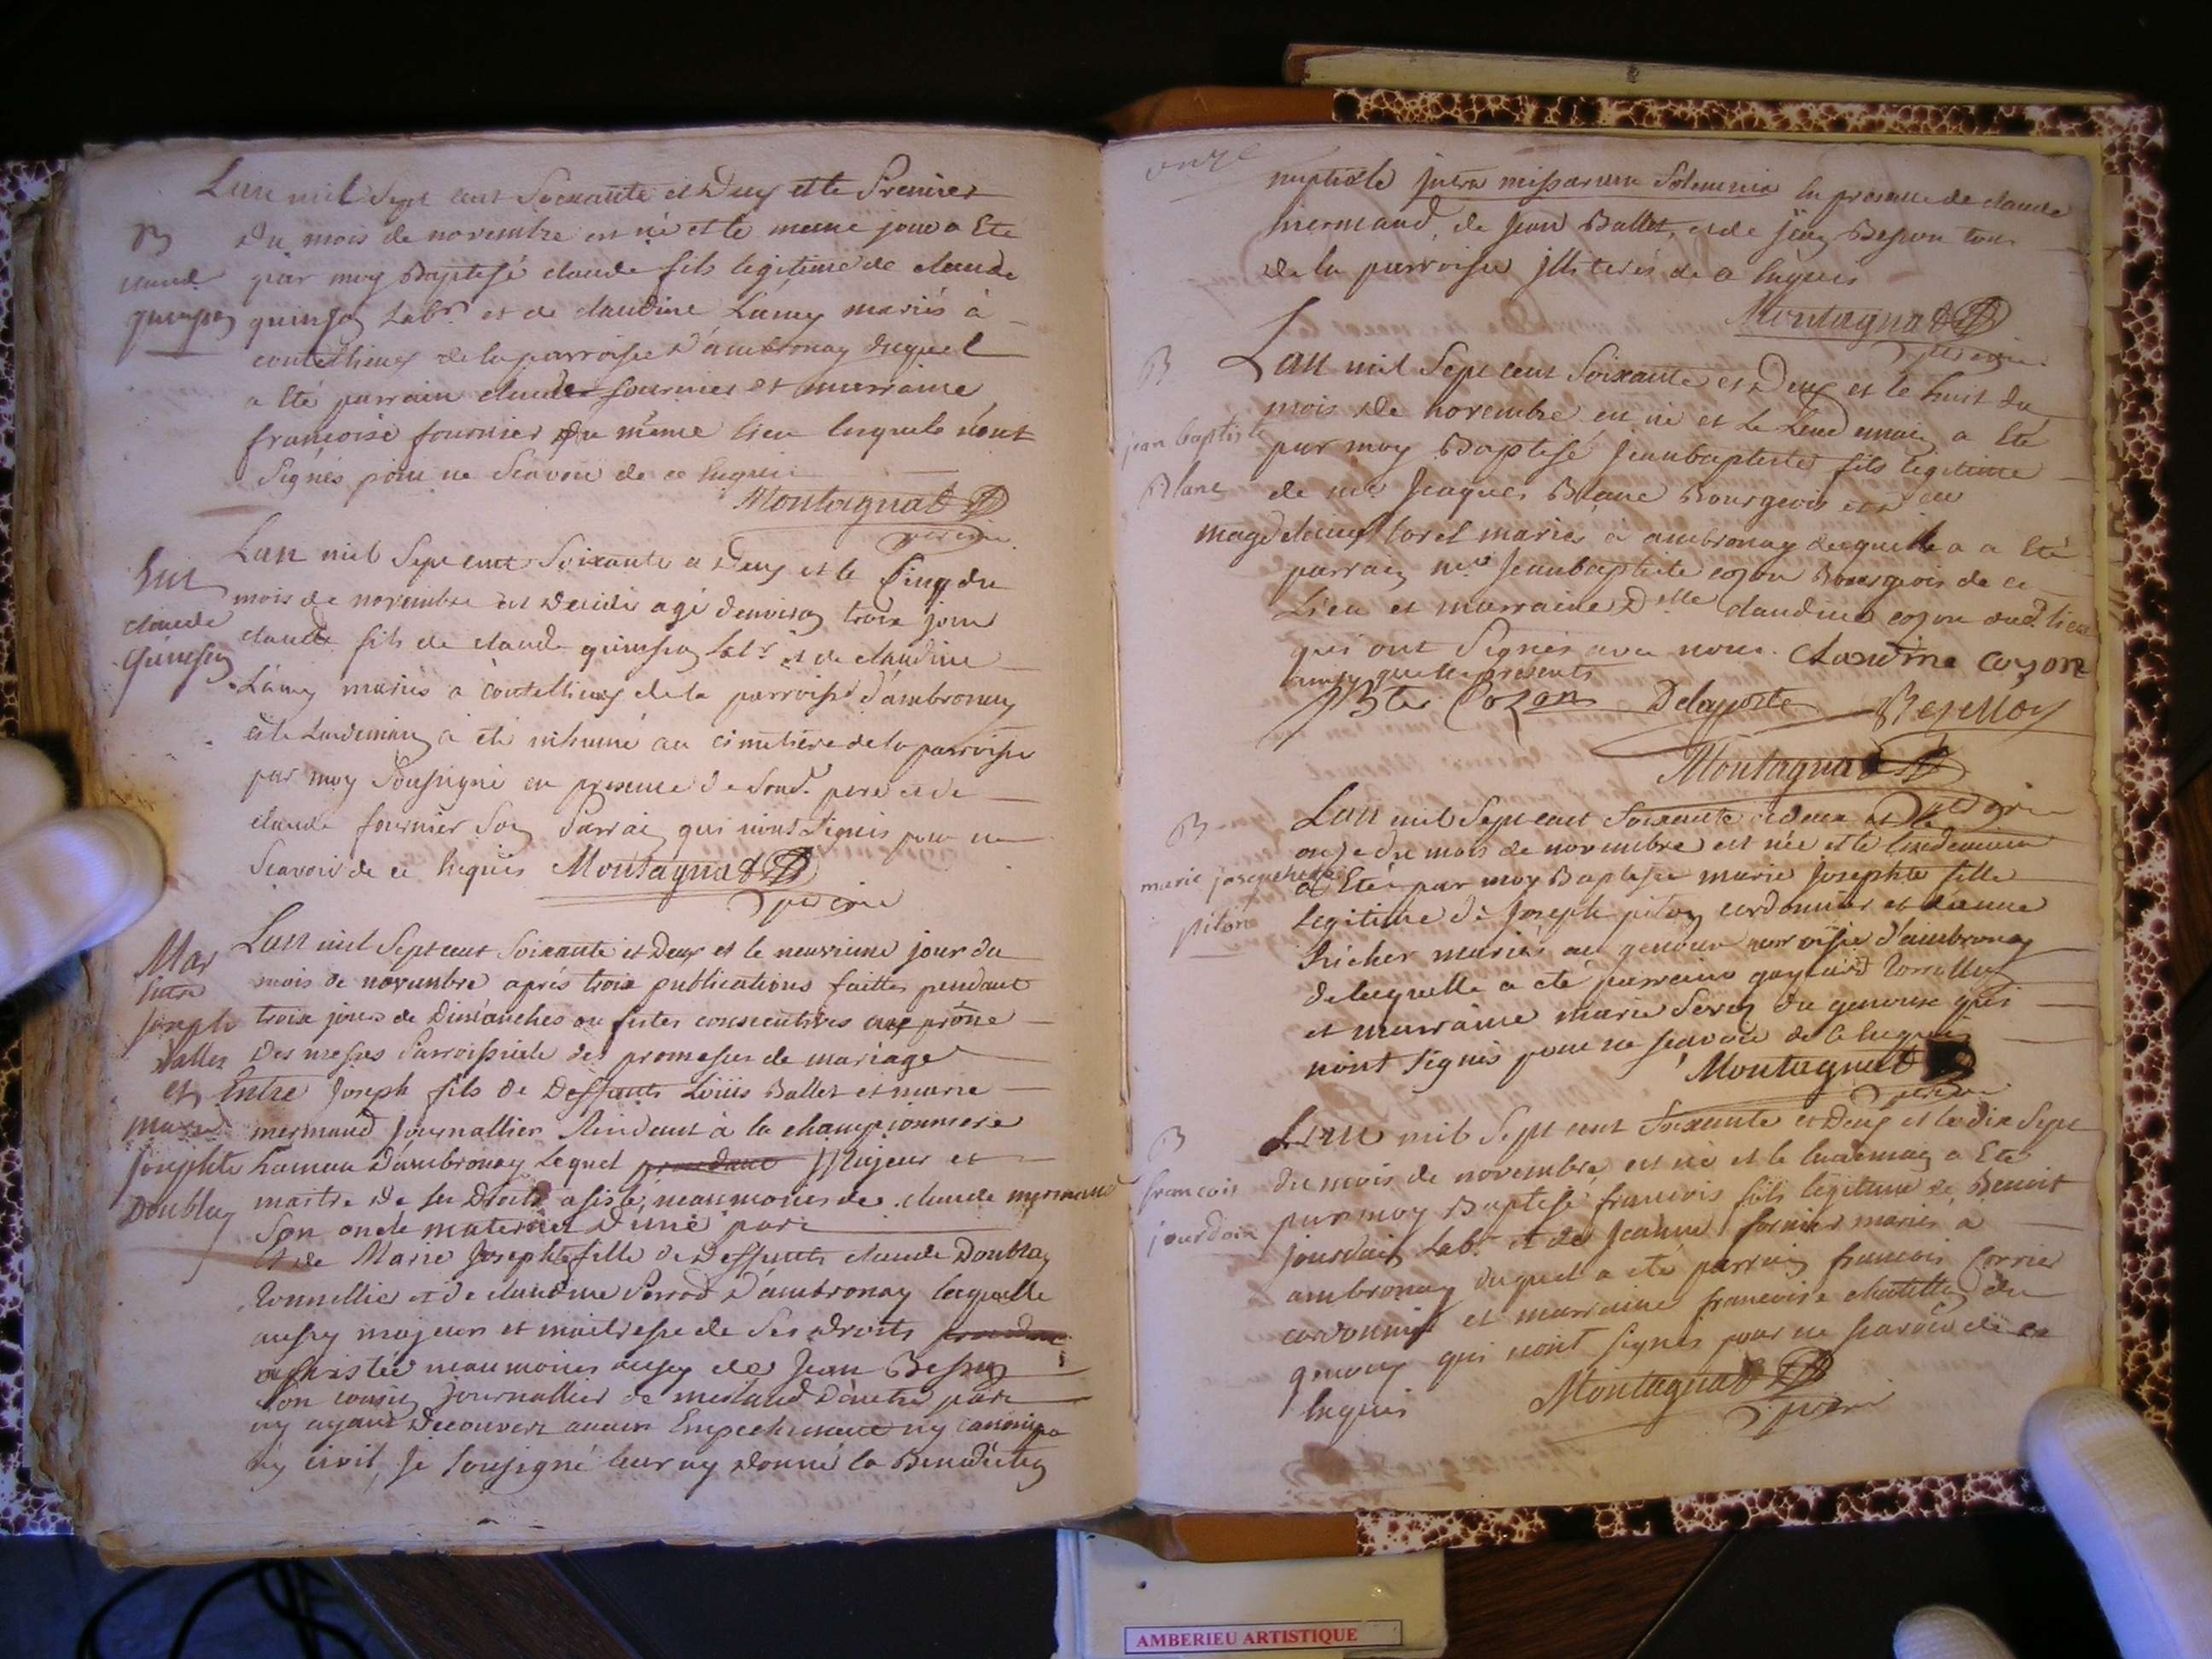 Lan mil Sept cent Soixante et Deux et le Premier
B
du mois de novembre est né et le meme jour a Eté
claude
par moy Baptisé claude fils legitime de claude
quinson
quinson Labr. et de claudine Lamy mariés à
coutellieux de la parroisse d'ambronay duquel
a Eté parrain claude fournier et marraine
françoise fournier du même lieu lesquels n'ont
Signés pour ne Scavoir de ce Enquis
Montagnat
vicaire
Ent
claude
quinson
Lan mil Sept cent Soixante et Deux et le Cinq du
mois de novembre est decedé agé denviron trois jours
claude fils de claude quinson Labr. et de claudine
Lamy mariés a coutellieux de la parroisse d'ambronay
et le Lendemain a eté inhumé au cimetiere de la parroisse
par moy Soussigné en presence de Sond. pere et de
claude fournier Son Parrain qui n'ont Signés pour ne
Scavoir de ce Enquis Montagnat
vicaire
Mar
Entre
joseph
Ballet
et
marie
josephte
Doublay
Lan mil Sept cent Soixante et Deux et le neuvieme jour du
mois de novembre aprés trois publications faittes pendant
trois jours de Dimanches ou festes consecutives aux prône
Des messes Parroissiale des promesses de mariage
Entre Joseph fils de Deffunts Loüis Ballet et marie
mermand Journallier Residant à la championniere
hameau d'ambronay Lequel procedant Majeur et
maitre de ses Droits assisté neanmoins de claude mermand
Son oncle maternel d'une part
Et de Marie Josephte fille de Deffunts claude Doublay
Tonnellier et de claudine Perrod d'ambronay laquelle
aussy majeure et maitresse de ses droits
assistée neanmoins aussy de Jean Besson
Son cousin journallier de d'autre part
ny ayant Decouvert aucun Empechement ny canonique
ny civil, Je Sousigné leur ay donné la Benediction
onze
nuptiale intra missarum Solemnia En presence de claude
mermand, de Jean Ballet, et de jean Besson tous
de la parroisse Illiterés de ce Enquis
Montagnat
vicaire
B
jean baptiste
Blanc
Lan mil Sept cent Soixante et Deux et le huit du
mois de novembre est né et le Lendemain a Eté
par moy Baptisé Jeanbaptiste fils legitime
de me Jacques Blanc Bourgeois et de
magdelaine Loret mariés à ambronay duquel a Eté
parrain mre Jeanbaptiste cozon Bourgeois de ce
Lieu et marraine Dlle claudine cozon dud. lieu
qui ont Signés avec nous. Claudine cozon
ainsy que les presents
JBte Cozon Delaporte
Montagnat
vicaire
B
marie josephte
piton
Lan mil Sept cent Soixante et deux et le
onze du mois de novembre est née et le lendemain
a Eté par moy Baptisée marie Josephte fille
legitime de Joseph piton cordonnier et d'anne
Richer mariés au genoux parroisse d'ambronay
de laquelle a eté parrain
et marraine marie du genoux qui
n'ont Signés pour ne scavoir de ce Enquis
Montagnat
vicaire
B
francois
jourdain
Lan mil Sept cent Soixante et Deux et le dix Sept
du mois de novembre est né et le lendemain a Eté
par moy Baptisé francois fils legitime de Benoit
jourdain Labr. et de Jeanne fornier mariés a
ambronay duquel a eté parrain francois
cordonnier et marraine francoise du
genoux qui n'ont signés pour ne scavoir de ce
Enquis
Montagnat
vicaire
AMBERIEU ARTISTIQUE